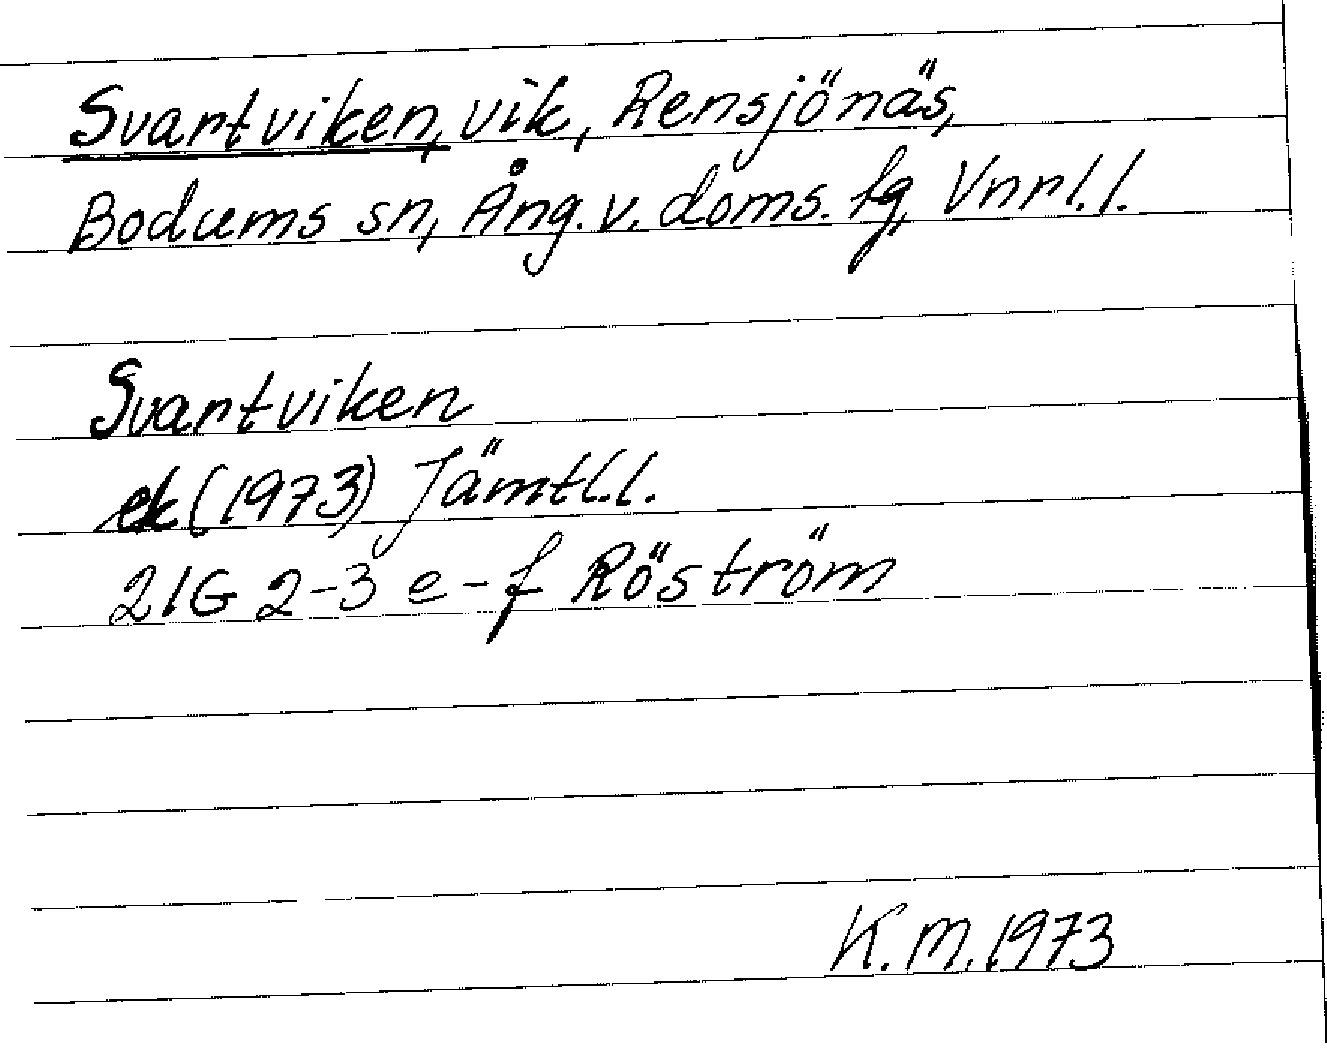 Svartviken, vik, Rensjönäs,
Bodums sn, Ång. v. doms. lg, Vnrl. l.
Svartviken
ek (1973) Jämtl. l.
21G 2-3 e-f Röström
K. M. 1973